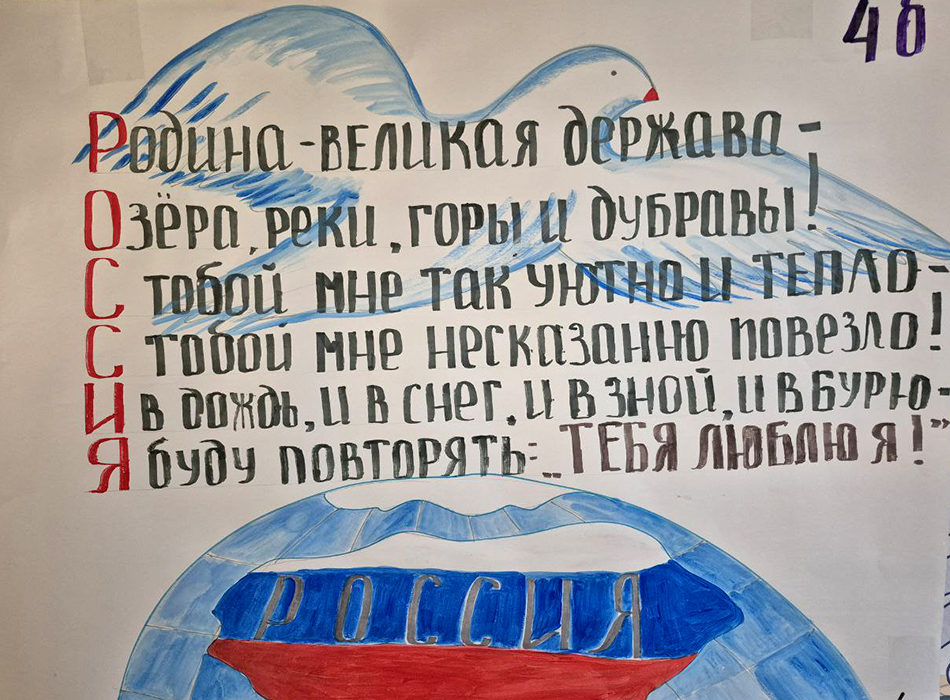 48
Родина - великая держава -
Озёра, реки, горы и дубравы!
С тобой мне так уютно и тепло -
С тобой мне несказанно повезло!
И в дождь, и в снег, и в зной, и в бурю -
Я буду повторять: „ТЕБЯ ЛЮБЛЮ Я!”
РОССИЯ